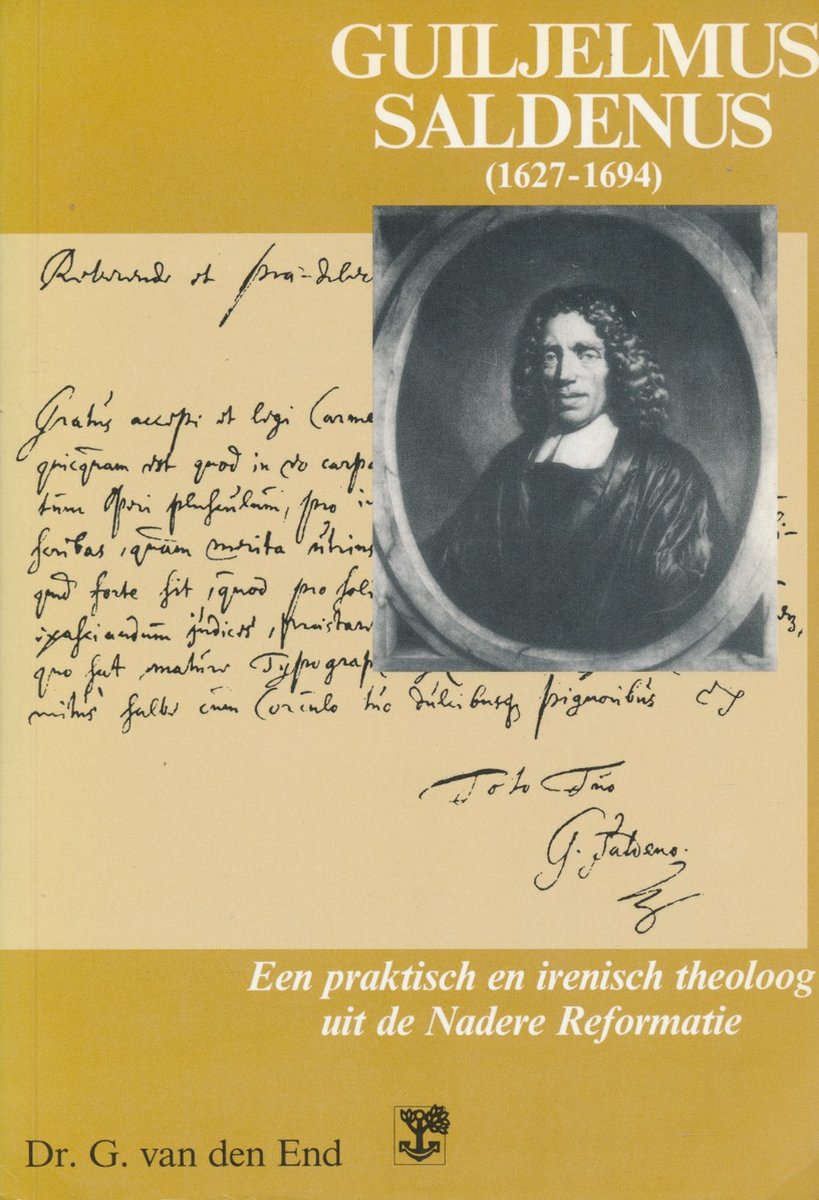 GUILJELMUS
SALDENUS
(1627-1694)
et
Gratus accepi et legi Carme
quicquam est quod in eo carp
tum Operi plusculum, pro
scribas, quam merita
quid forte sit, quod pro soli
judices,
quo sat mature Typograp
salve cum Corculo tuo dulcibusq pignoribus
Toto Tuo
G. Saldeno.
Een praktisch en irenisch theoloog
uit de Nadere Reformatie
Dr. G. van den End